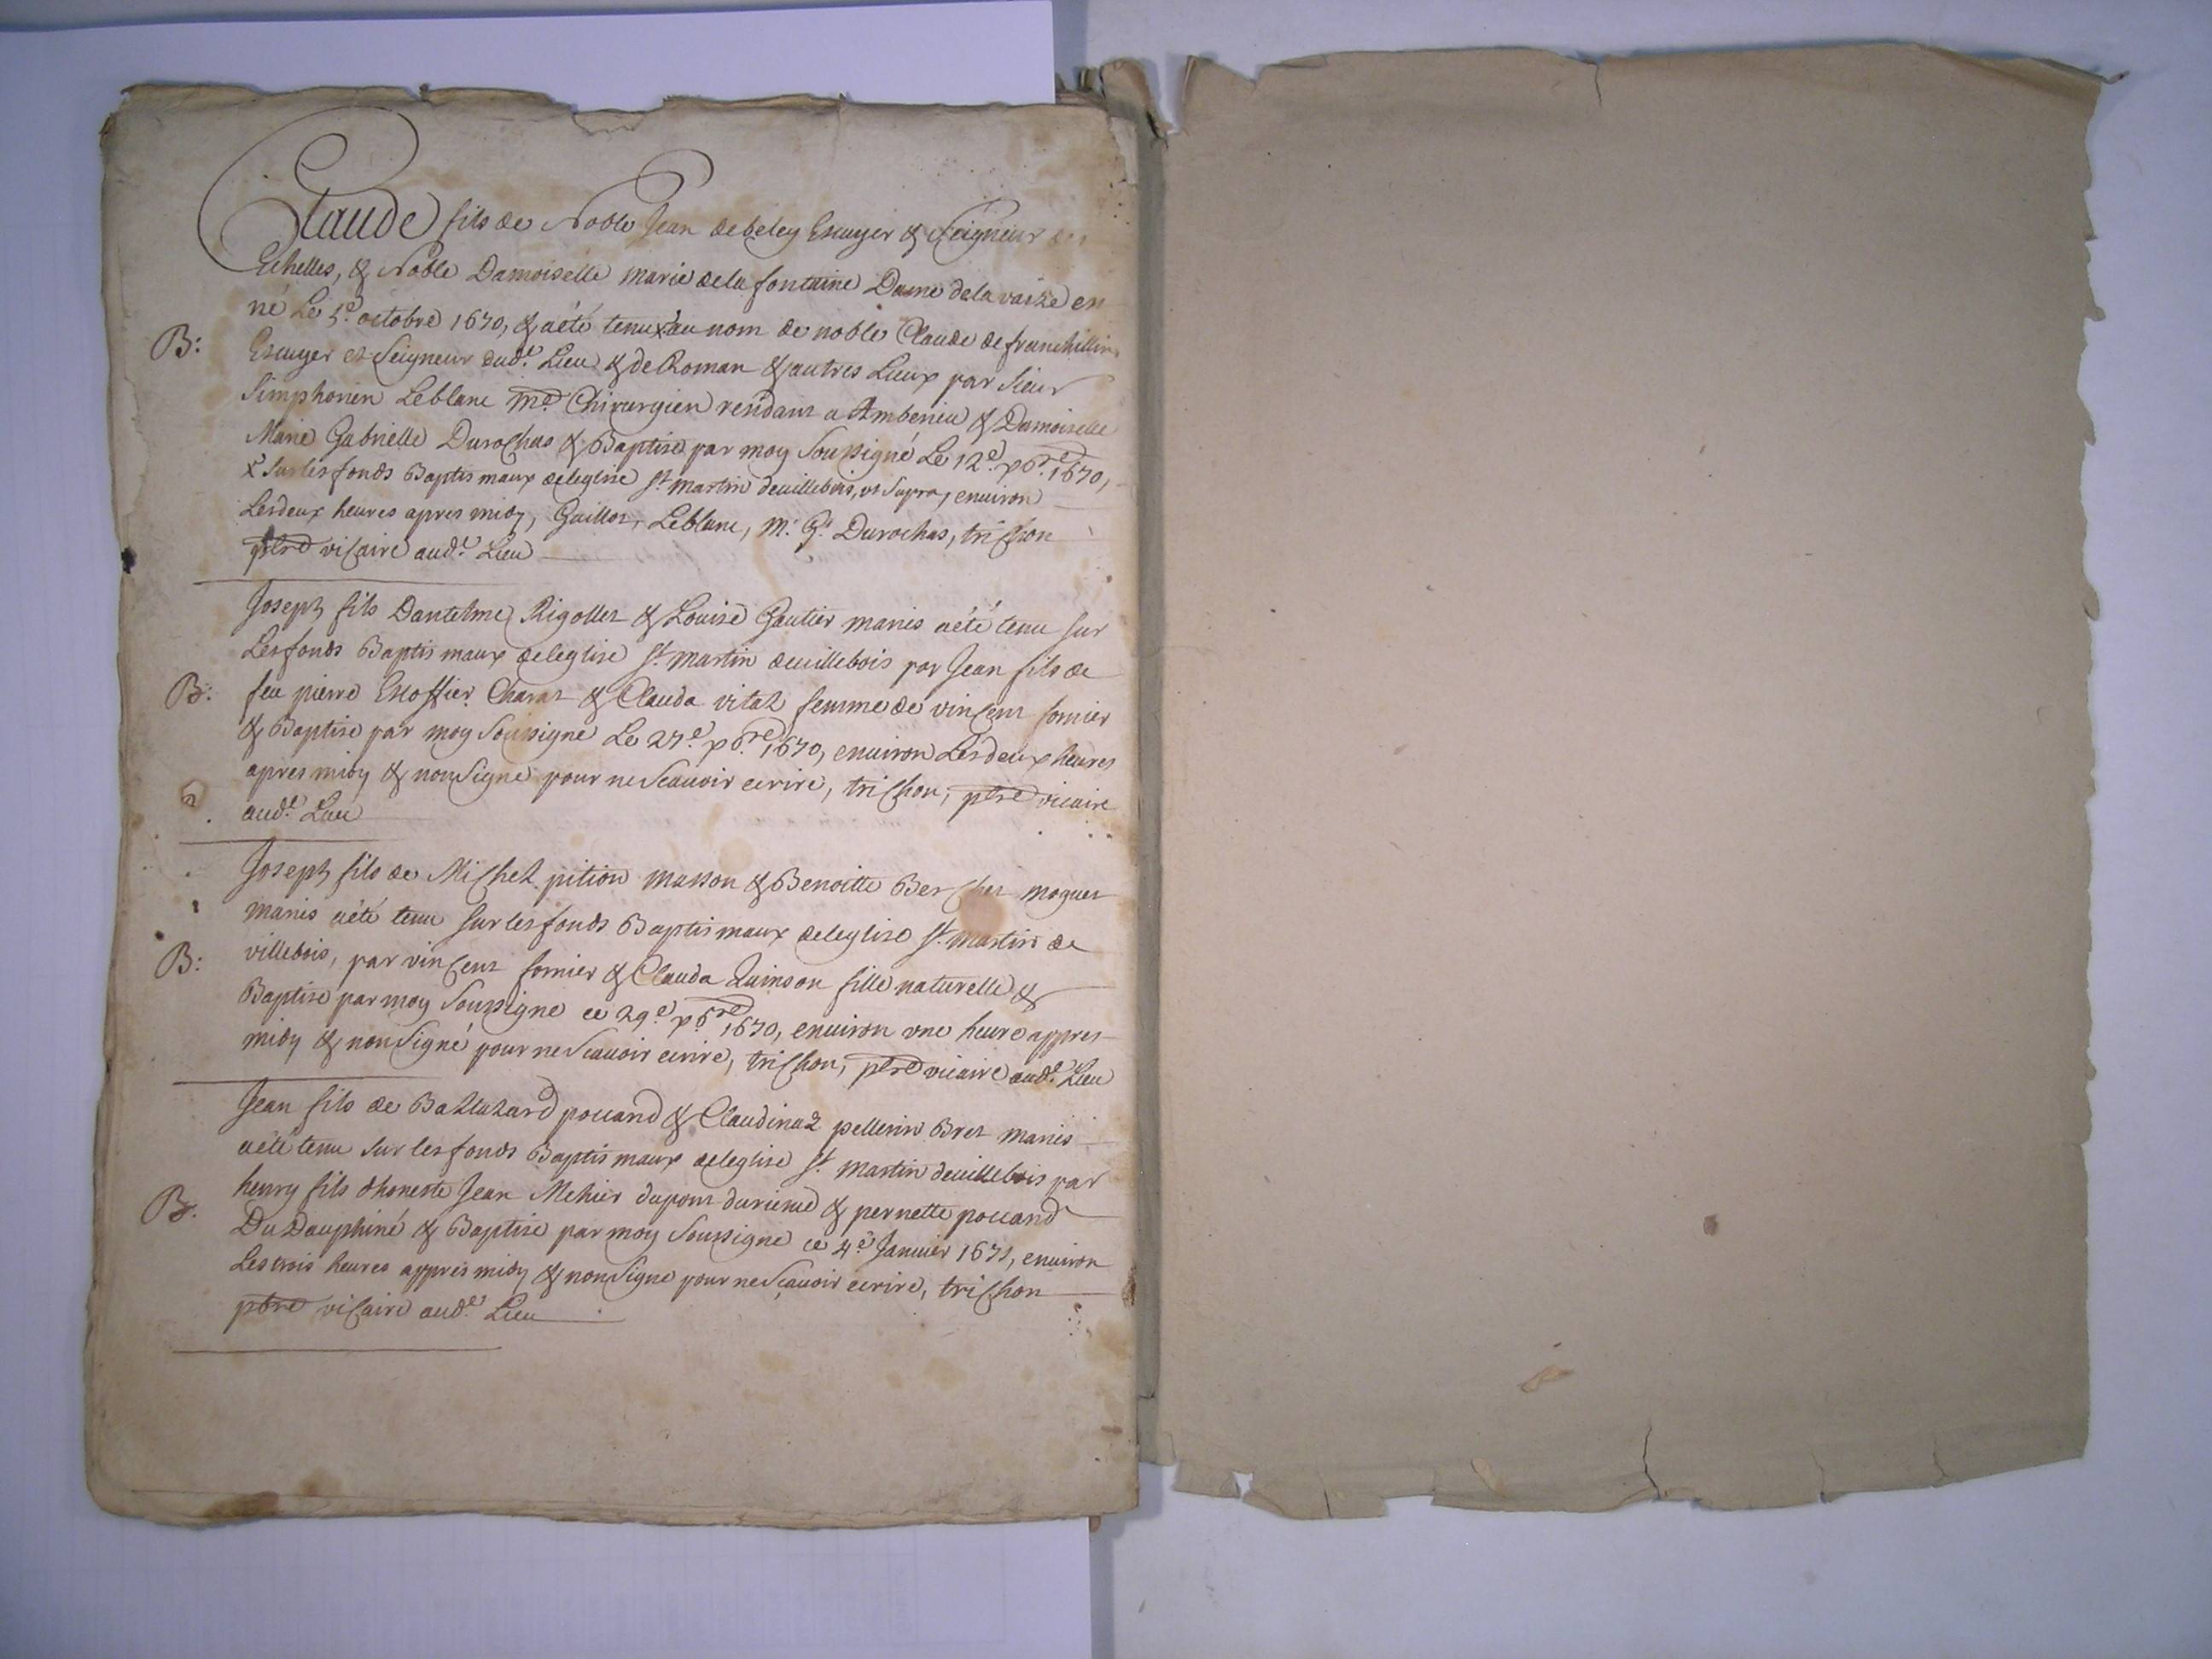 Claude fils de Noble Jean de beley Escuyer & Seigneur des
Echelles, & Noble Damoiselle marie dela fontaine Dame dela varze en
né Le 5e. octobre 1670, & aété tenu x au nom de noble Claude de franchillin
B: Escuyer et Seigneur dudt. Lieu & de Roman & autres Lieux par Sieur
Simphorien Leblanc me. Chirurgien residant a Amberieu & Damoiselle
Marie Gabrielle Durochas & Baptisé par moy Soussigné Le 12e. xbre. 1670,
x Sur les fonds Baptismaux deleglise st. martin deuillebois, vt Supra, enuiron
Les deux heures apres midy, Guillot, Leblanc, M. G. Durochas, trichon
ptre vicaire audt. Lieu
Joseph fils Dantelme Rigollet & Louise Gautier mariés aété tenu sur
Les fonds Baptismaux deleglise st. martin deuillebois par Jean fils de
B: feu pierre Escoffier Charat & Clauda vital femme de vincent fornier
& Baptisé par moy Soussigné Le 27e. xbre. 1670, enuiron Les deux heures
apres midy & non Signé pour ne Scauoir ecrire, trichon, ptre vicaire
audt. Lieu
Joseph fils de Michel pition masson & Benoitte Berchet moguet
mariés aété tenu sur les fonds Baptismaux deleglise st. martin de
B: villebois, par vincent fornier & Clauda Quinson fille naturelle &
Baptisé par moy Soussigné ce 29e. xbre. 1670, enuiron vne heure appres
midy & non Signé pour ne Scauoir ecrire, trichon, ptre vicaire audt. Lieu
Jean fils de Baltazard pouand & Claudinaz pellerin Bret mariés
aété tenu sur les fonds Baptismaux deleglise st. martin deuillebois par
henry fils dhoneste Jean Mehier dupont & pernette pouand
B: Du Dauphiné & Baptisé par moy Soussigné ce 4e. Januier 1671, enuiron
Les trois heures appres midy & non Signé pour ne Scauoir ecrire, trichon
ptre vicaire audt. Lieu